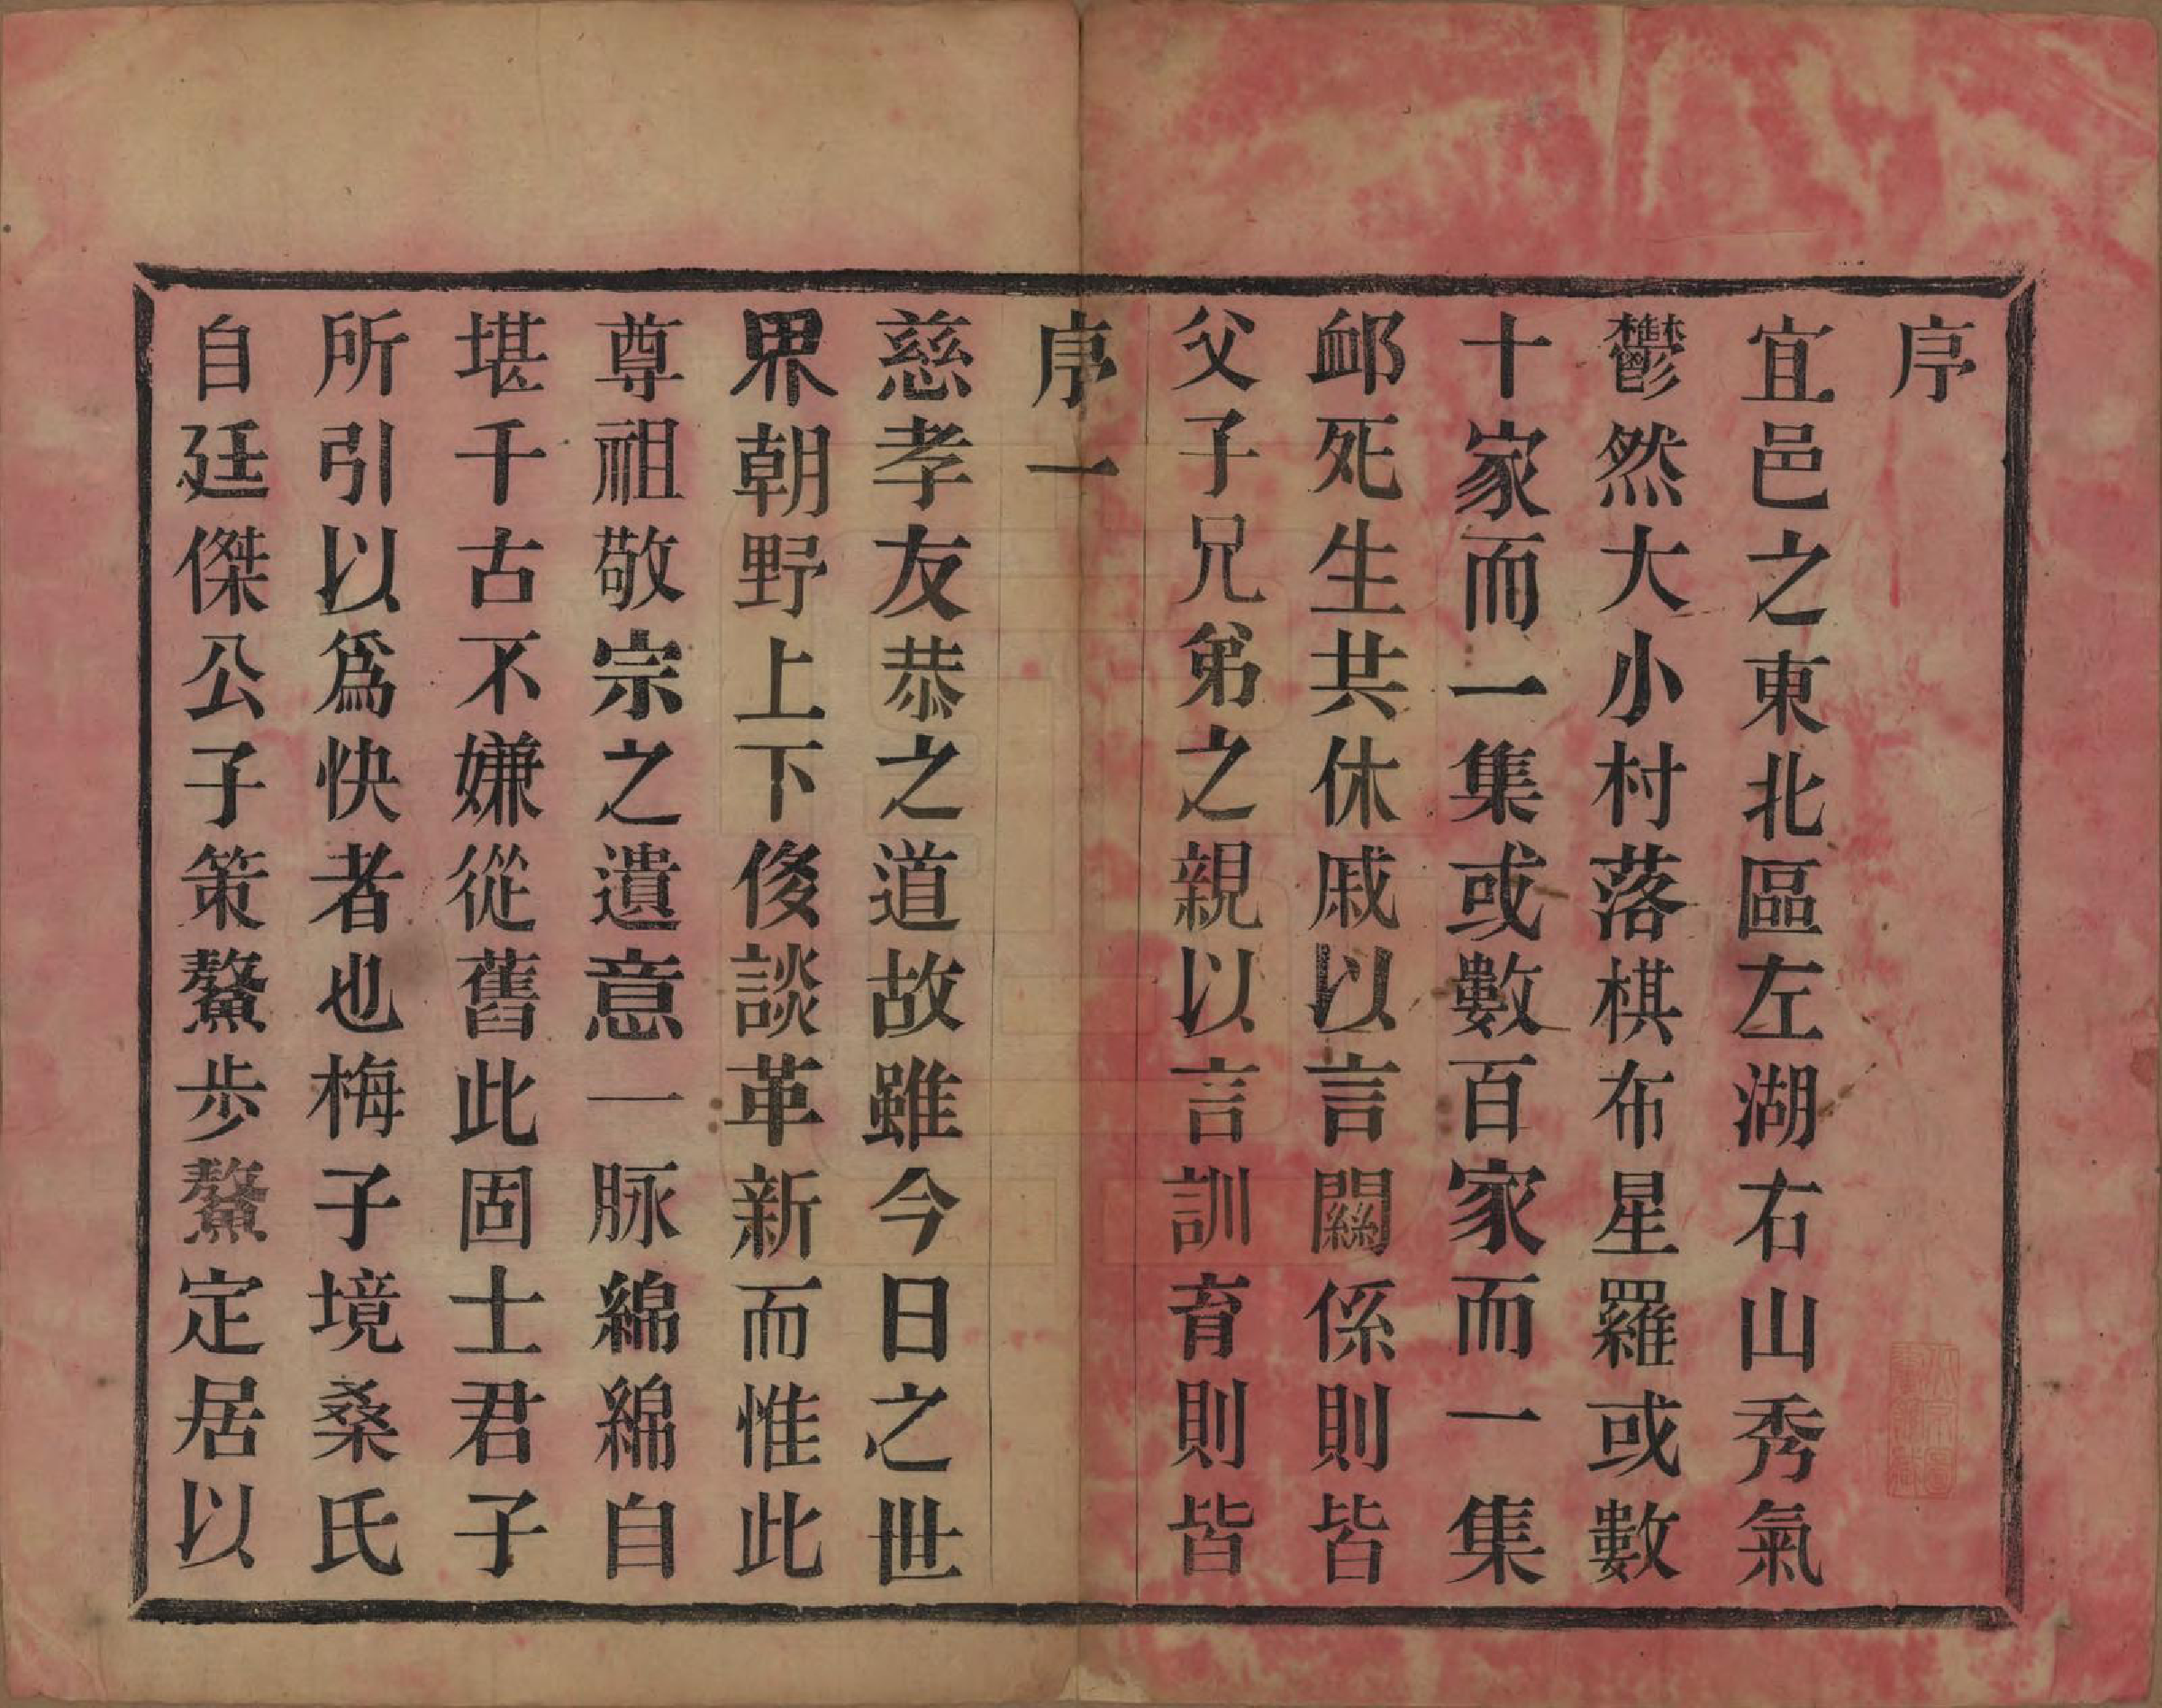 序
宜邑之東北區左湖右山秀氣
鬱然大小村落棋布星羅或數
十家而一集或數百家而一集
邺死生共休戚以言關係則皆
父子兄弟之親以言訓育則皆
序一
慈孝友恭之道故雖今日之世
界朝野上下後談革新而惟此
尊祖敬宗之遺意一脉綿綿自
堪千古不嫌從舊此固士君子
所引以爲快者也梅子境桑氏
自廷傑公子策鰲步鰲定居以